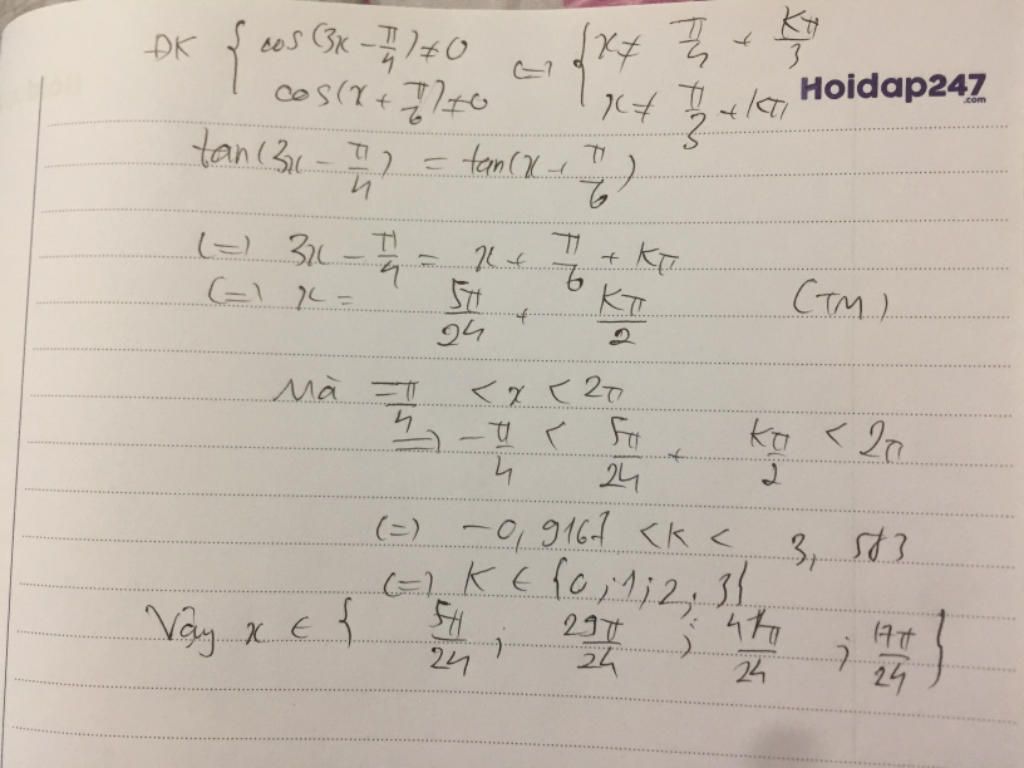 ĐK { cos(3x - π/4) ≠ 0 <=> { x ≠ π/4 + kπ/3
cos(x + π/6) ≠ 0 x ≠ π/3 + kπ
Hoidap247
.com
tan(3x - π/4) = tan(x + π/6)
(=) 3x - π/4 = x + π/6 + kπ
(=) x = 5π/24 + kπ/2 (TM)
Mà -π/4 < x < 2π
=) -π/4 < 5π/24 + kπ/2 < 2π
(=) -0,9167 < k < 3,583
(=) k ∈ {0;1;2;3}
Vậy x ∈ { 5π/24; 29π/24; 41π/24; 17π/24 }